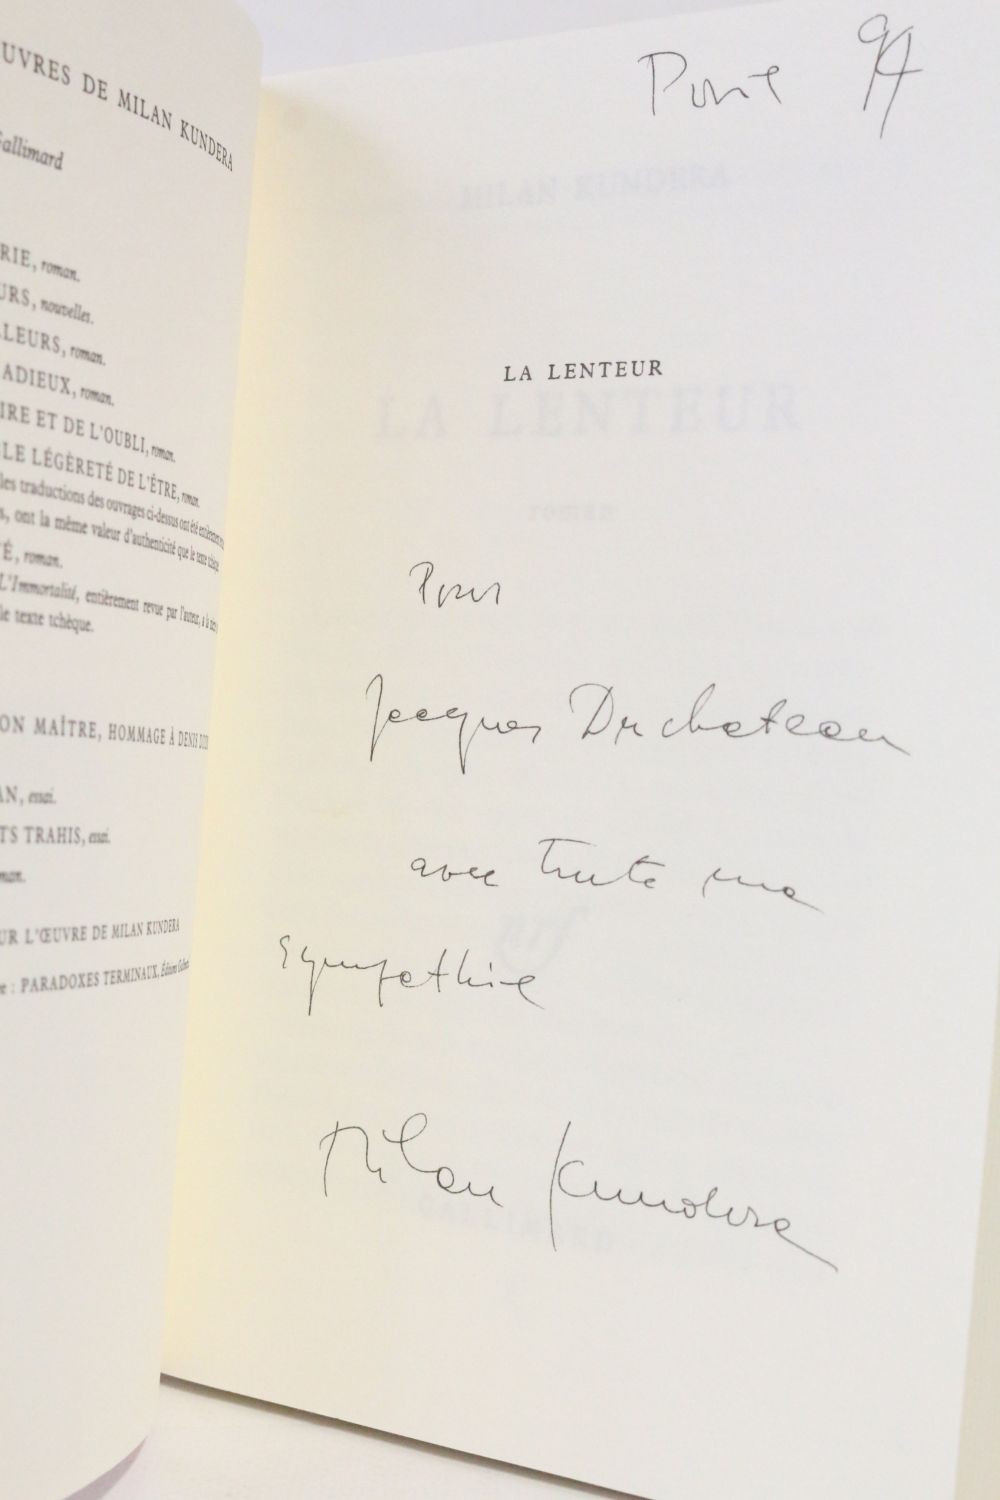 UVRES DE MILAN KUNDERA
Gallimard
RIE, roman.
URS, nouvelles.
LEURS, roman.
ADIEUX, roman.
IRE ET DE L'OUBLI, roman.
LE LÉGÈRETÉ DE L'ÊTRE, roman.
les traductions des ouvrages ci-dessus ont été entièrement
s, ont la même valeur d'authenticité que le texte tchèque
É, roman.
L'Immortalité, entièrement revue par l'auteur, a la
le texte tchèque.
ON MAÎTRE, HOMMAGE À DENIS
AN, essai.
TS TRAHIS, essai.
man.
UR L'ŒUVRE DE MILAN KUNDERA
e : PARADOXES TERMINAUX, Éditions
Paris 94
MILAN KUNDERA
LA LENTEUR
LA LENTEUR
roman
Pour
Jacques Duchateau
avec toute ma
nrf
sympathie
Milan Kundera
GALLIMARD